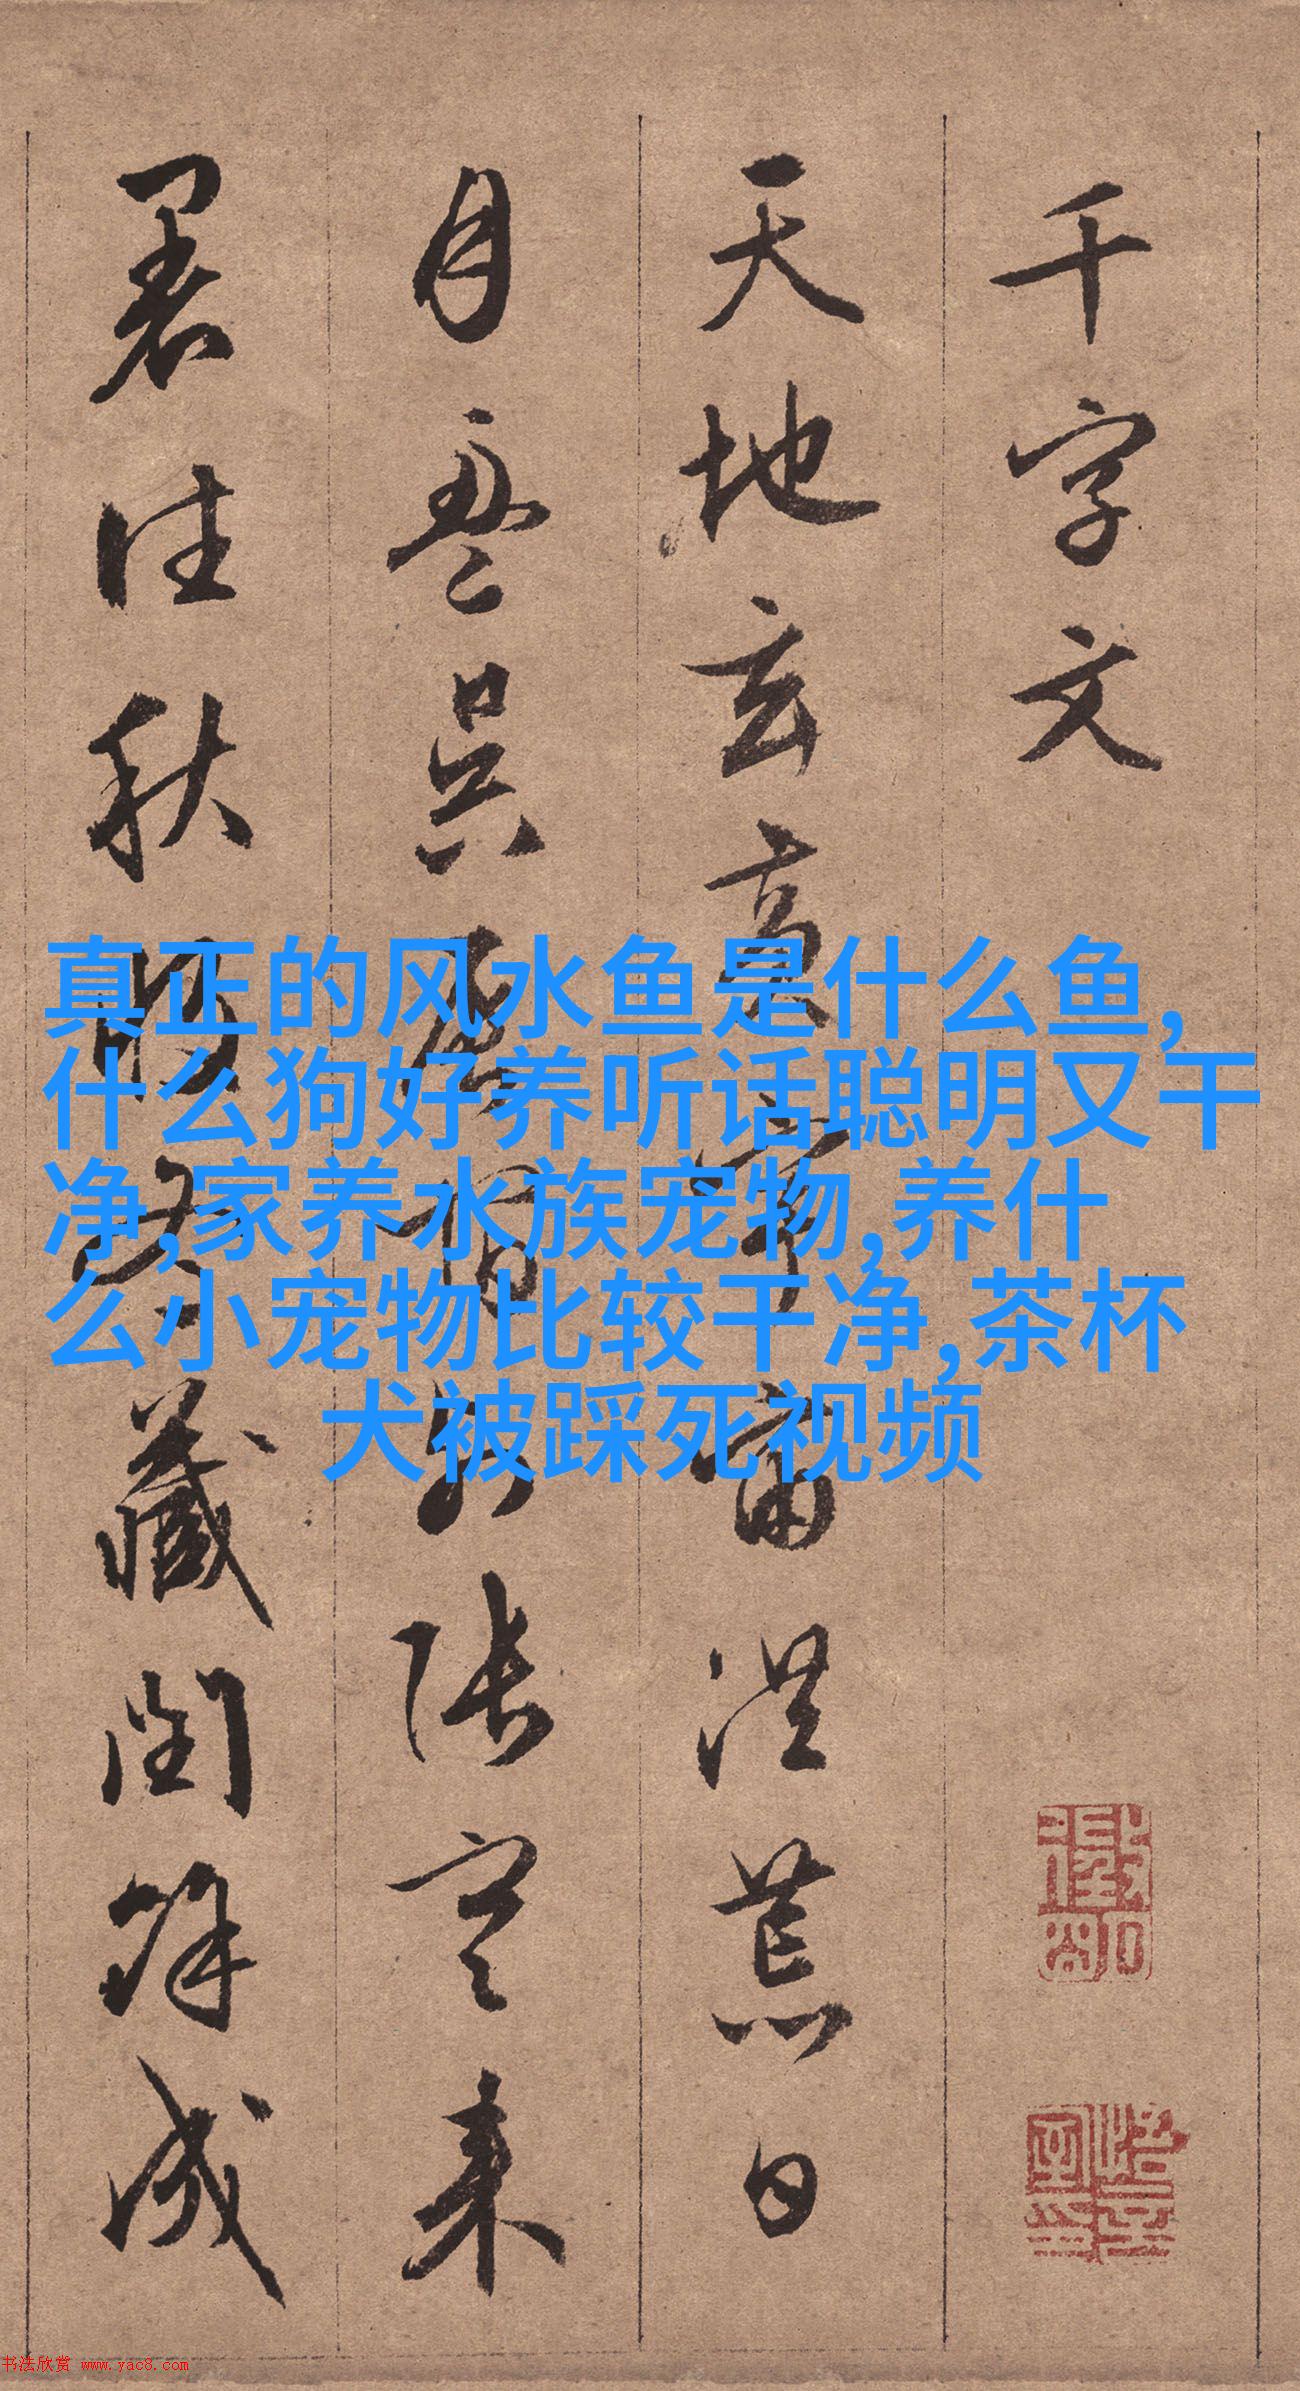 千字文
天地玄黃宇宙洪荒日
月盈昃辰宿列張寒来
暑往秋收冬藏閏餘成
真正的风水鱼是什么鱼,
什么狗好养听话聪明又干
净,家养水族宠物,养什
么小宠物比较干净,茶杯
犬被踩死视频
书法欣赏 www.yac8.com